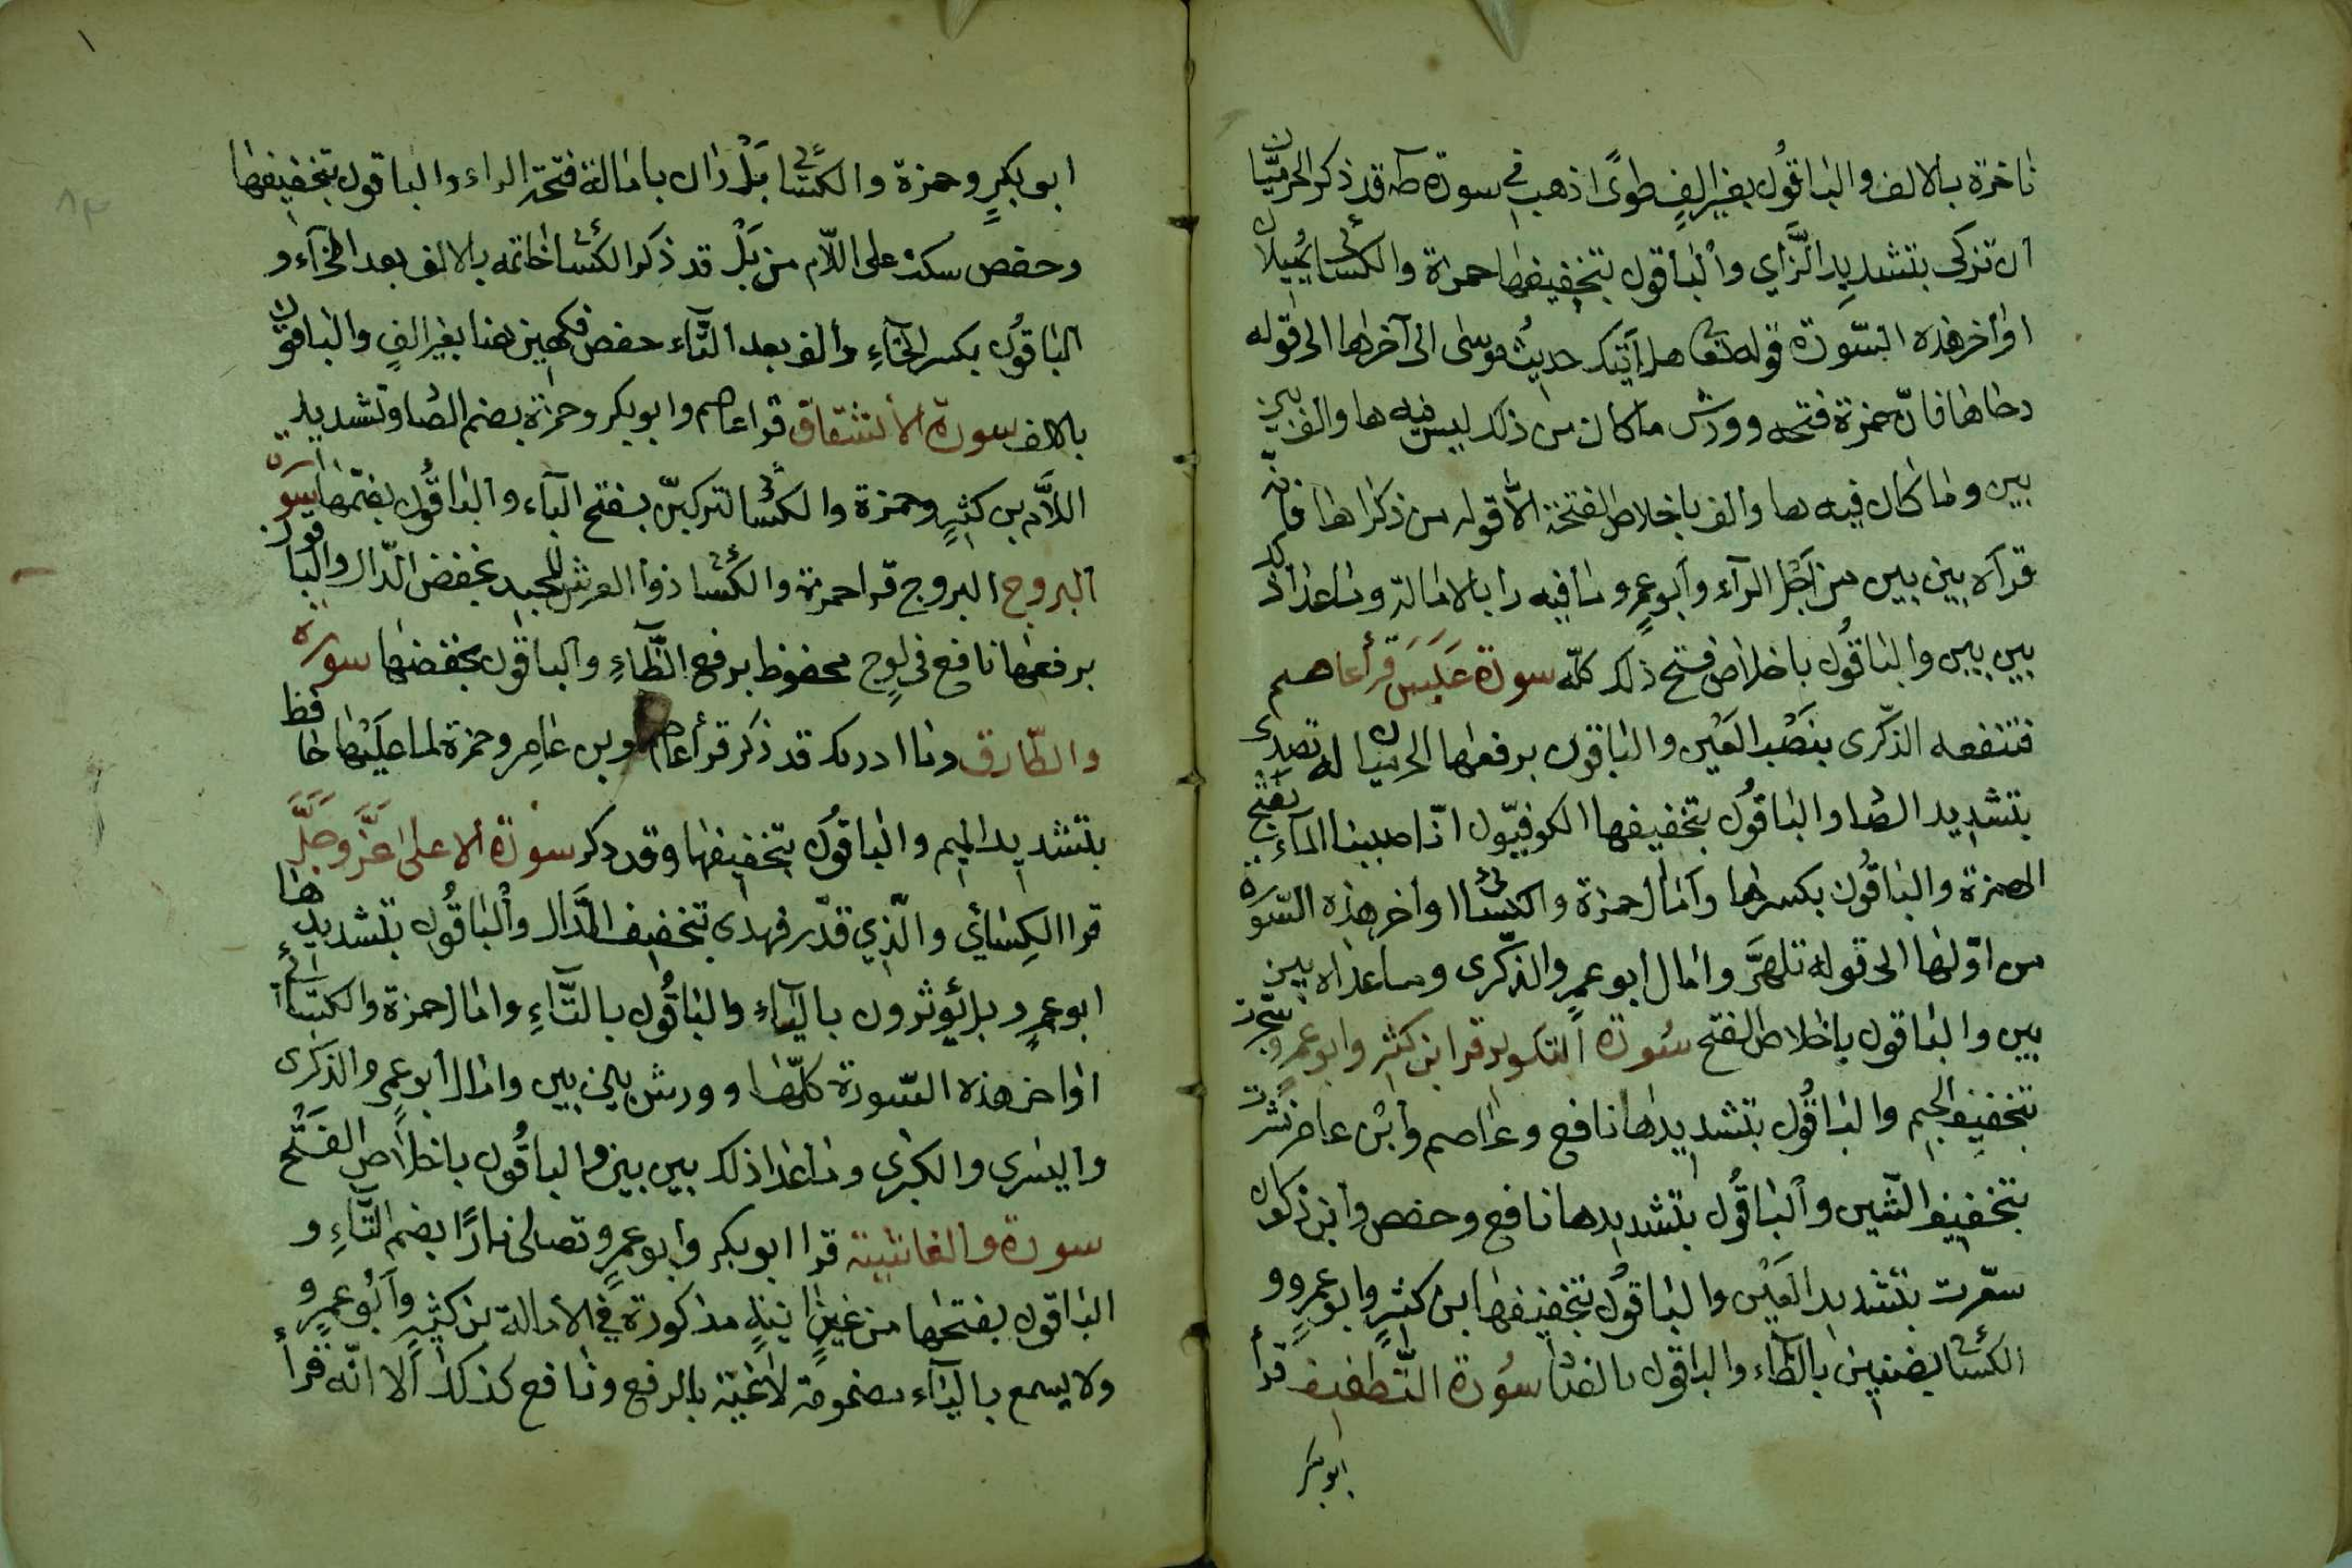 ناخرة بالالف والباقون بغير الف طوى اذهب في سورة طه قد ذكر الحرميان
ان تزكى بتشديد الزاي والباقون بتخفيفها حمزة والكسائي يميلان
اواخر هذه السورة قوله تعا هل اتيك حديث موسى الى آخرها الى قوله
دحاها فان حمزة فتحه وورش ما كان من ذلك ليس فيه ها والف بين
بين وما كان فيه ها والف باخلاص الفتحة الا قوله من ذكراها فانه
قرآه بين بين من اجل الرآء وابو عمرو ما فيه را بالامالة وما عدا ذلك
بين بين والباقون باخلاص فتح ذلك كله سورة عبس قرأ عاصم
فتنفعه الذكرى بنصب العين والباقون برفعها الحرميان له تصدى
بتشديد الصا والباقون بتخفيفها الكوفيون انا صببنا المآء بفتح
الهمزة والباقون بكسرها وامال حمزة والكسائي اواخر هذه السورة
من اولها الى قوله تلهى وامال ابو عمرو الذكرى وما عداه بين
بين والباقون باخلاص الفتح سورة التكوير قرا ابن كثير وابو عمرو سجرت
بتخفيف الجيم والباقون بتشديدها نافع وعاصم وابن عامر نشرت
بتخفيف الشين والباقون بتشديدها نافع وحفص وابن ذكوان
سعرت بتشديد العين والباقون بتخفيفها ابن كثير وابو عمرو و
الكسائي بضنين بالظآء والباقون بالضاد سورة التطفيف قرأ
ابو بكر
ابو بكر وحمزة والكسائي بل ران بامالة فتحة الراء والباقون بتخفيفها
وحفص سكت على اللام من بل قد ذكر الكسائي خاتمه بالالف بعد الخآء و
الباقون بكسر الخآء والف بعد التآء حفص فكهين هنا بغير الف والباقون
بالالف سورة الانشقاق قرا عاصم وابو بكر وحمزة بضم الصا وتشديد
اللام بن كثير وحمزة والكسائي لتركبن بفتح البآء والباقون بضمها سورة
البروج البروج قرا حمزة والكسائي ذوا العرش المجيد بخفض الدال والباقون
برفعها نافع في لوح محفوظ برفع الظآء والباقون بخفضها سورة
والطارق وما ادريك قد ذكر قرأ عاصم وبن عامر وحمزة لما عليها حافظ
بتشديد الميم والباقون بتخفيفها وقد ذكر سورة الاعلى عز وجل
قرا الكسائي والذي قدر فهدى بتخفيف الدال والباقون بتشديدها
ابو عمرو بل يؤثرون باليآء والباقون بالتآء وامال حمزة والكسائي
اواخر هذه السورة كلها وورش بين بين وامال ابو عمرو الذكرى
واليسرى والكبرى وما عدا ذلك بين بين والباقون باخلاص الفتح
سورة والغاشية قرا ابو بكر وابو عمرو تصلى نارا بضم التآء و
الباقون بفتحها من عين انية مذكورة في الامالة بن كثير وابو عمرو
ولا يسمع باليآء مضمومة لاغية بالرفع ونافع كذلك الا انه قرأ